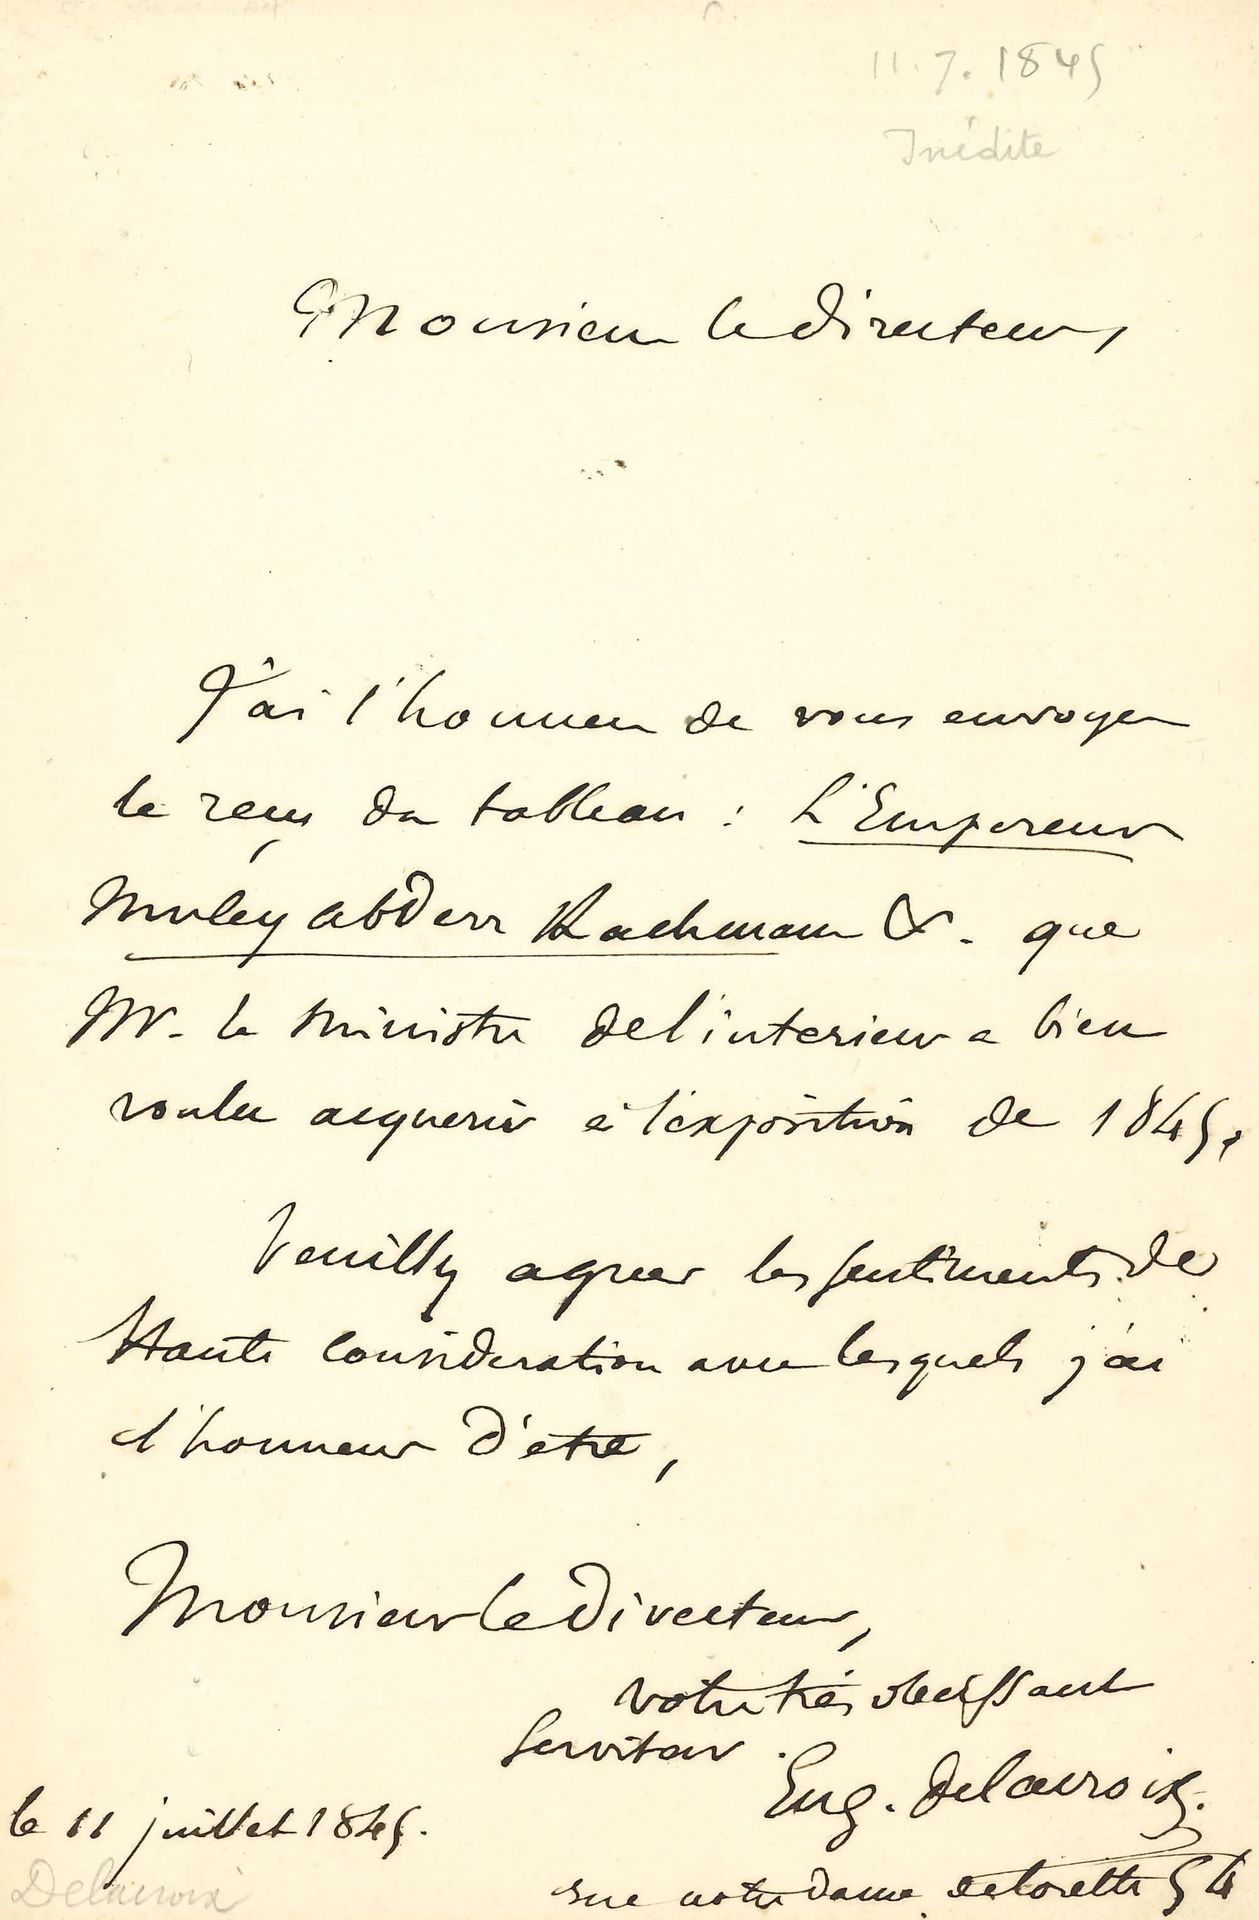 11.7.1845
Inédite
Monsieur le directeur,
J'ai l'honneur de vous envoyer
le reçu du tableau : L'Empereur
Muley abderr Rachmann &. que
Mr. le Ministre de l'interieur a bien
voulu acquerir à l'exposition de 1845.
Veuillez agreer les sentiments de
Haute consideration avec lesquels j'ai
l'honneur d'etre,
Monsieur le Directeur,
votre très obeissant
Serviteur.
Eug. Delacroix.
le 11 juillet 1845.
rue notre dame de lorette 54
Delacroix